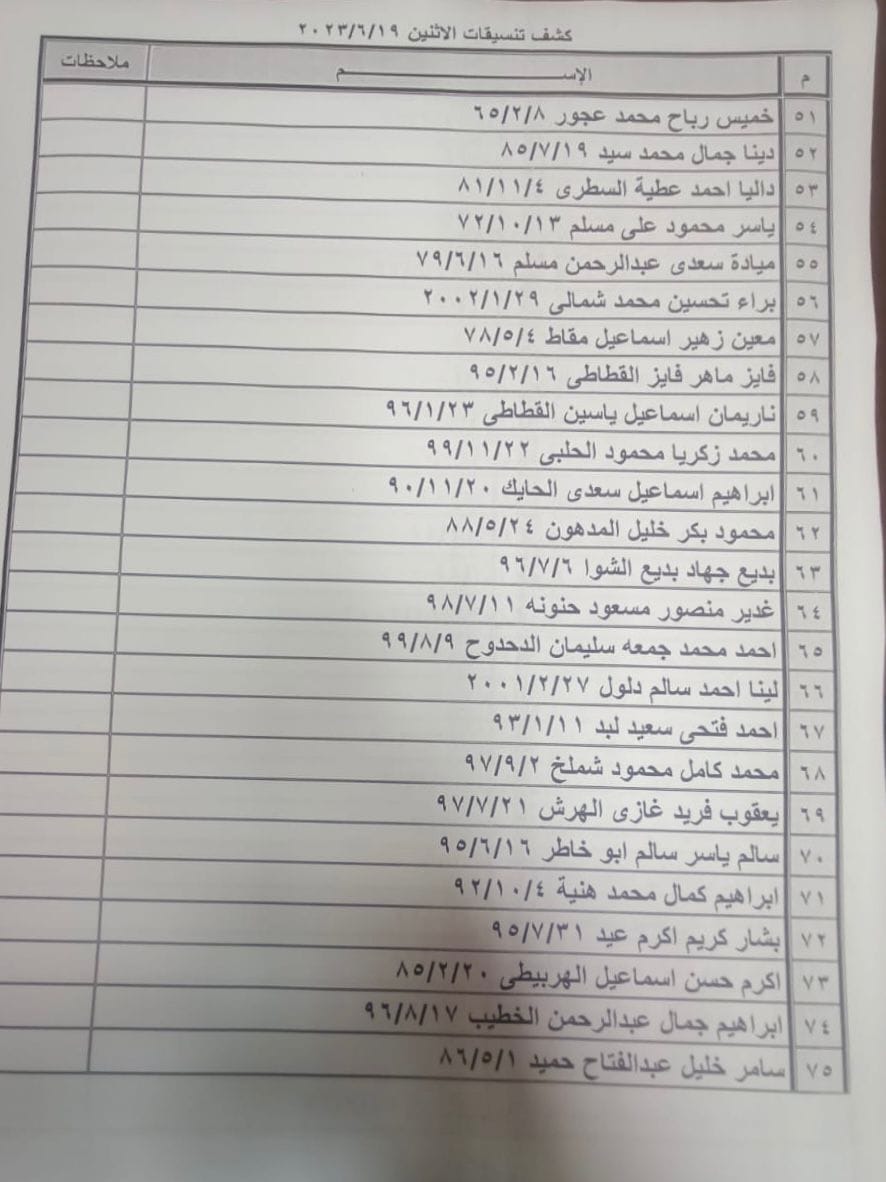 كشف تنسيقات الاثنين ٢٠٢٣/٦/١٩
م الإســـــــم ملاحظات
٥١ خميس رباح محمد عجور ٦٥/٢/٨
٥٢ دينا جمال محمد سيد ٨٥/٧/١٩
٥٣ داليا احمد عطية السطرى ٨١/١١/٤
٥٤ ياسر محمود على مسلم ٧٢/١٠/١٣
٥٥ ميادة سعدى عبدالرحمن مسلم ٧٩/٦/١٦
٥٦ براء تحسين محمد شمالى ٢٠٠٢/١/٢٩
٥٧ معين زهير اسماعيل مقاط ٧٨/٥/٤
٥٨ فايز ماهر فايز القطاطى ٩٥/٢/١٦
٥٩ ناريمان اسماعيل ياسين القطاطى ٩٦/١/٢٣
٦٠ محمد زكريا محمود الحلبى ٩٩/١١/٢٢
٦١ ابراهيم اسماعيل سعدى الحايك ٩٠/١١/٢٠
٦٢ محمود بكر خليل المدهون ٨٨/٥/٢٤
٦٣ بديع جهاد بديع الشوا ٩٦/٧/٦
٦٤ غدير منصور مسعود حنونه ٩٨/٧/١١
٦٥ احمد محمد جمعه سليمان الدحدوح ٩٩/٨/٩
٦٦ لينا احمد سالم دلول ٢٠٠١/٢/٢٧
٦٧ احمد فتحى سعيد لبد ٩٣/١/١١
٦٨ محمد كامل محمود شملخ ٩٧/٩/٢
٦٩ يعقوب فريد غازى الهرش ٩٧/٧/٢١
٧٠ سالم ياسر سالم ابو خاطر ٩٥/٦/١٦
٧١ ابراهيم كمال محمد هنية ٩٢/١٠/٤
٧٢ بشار كريم اكرم عيد ٩٥/٧/٣١
٧٣ اكرم حسن اسماعيل الهربيطى ٨٥/٢/٢٠
٧٤ ابراهيم جمال عبدالرحمن الخطيب ٩٦/٨/١٧
٧٥ سامر خليل عبدالفتاح حميد ٨٦/٥/١